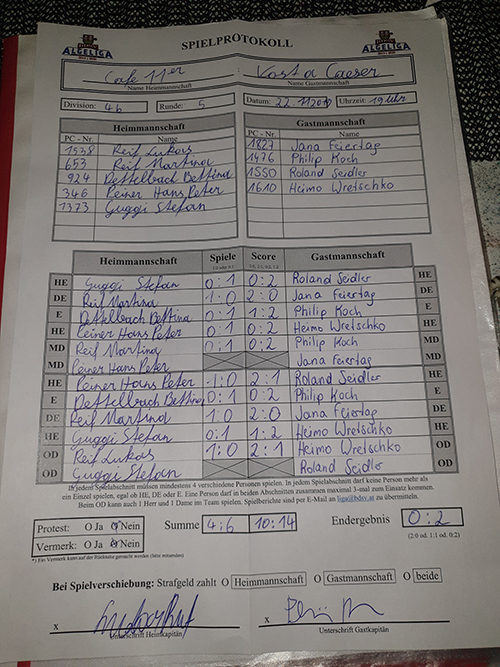 ALGELIGA SPIELPROTOKOLL ALGELIGA
Cafe 11er : Kosta Caeser
Name Heimmannschaft Name Gastmannschaft
Division: 4b Runde: 5 Datum: 22.11 Uhrzeit: 19 Uhr
Heimmannschaft Gastmannschaft
PC - Nr. Name PC - Nr. Name
1538 Reif Lukas 1827 Jana Feiertag
653 Reif Martina 1476 Philip Koch
924 Dettelbach Bettina 1550 Roland Seidler
346 Peiner Hans Peter 1610 Heimo Wretschko
1373 Guggi Stefan
Heimmannschaft Spiele Score Gastmannschaft
HE Guggi Stefan 0:1 0:2 Roland Seidler HE
DE Reif Martina 1:0 2:0 Jana Feiertag DE
E Dettelbach Bettina 0:1 1:2 Philip Koch E
HE Peiner Hans Peter 0:1 0:2 Heimo Wretschko HE
MD Reif Martina 0:1 0:2 Philip Koch MD
MD Peiner Hans Peter Jana Feiertag MD
HE Peiner Hans Peter 1:0 2:1 Roland Seidler HE
E Dettelbach Bettina 0:1 0:2 Philip Koch E
DE Reif Martina 1:0 2:0 Jana Feiertag DE
HE Guggi Stefan 0:1 1:2 Heimo Wretschko HE
OD Reif Lukas 1:0 2:1 Heimo Wretschko OD
OD Guggi Stefan Roland Seidler OD
In jedem Spielabschnitt müssen mindestens 4 verschiedene Personen spielen. In jedem Spielabschnitt darf keine Person mehr als
ein Einzel spielen, egal ob HE, DE oder E. Eine Person darf in beiden Abschnitten zusammen maximal 3-mal zum Einsatz kommen.
Beim OD kann auch 1 Herr und 1 Dame im Team spielen. Spielberichte sind per E-Mail an liga@bdsv.at zu übermitteln.
Protest: O Ja O Nein Summe 4:6 10:14 Endergebnis 0:2
Vermerk: O Ja O Nein (2:0 od. 1:1 od. 0:2)
*) Ein Vermerk kann auf der Rückseite gemacht werden (bitte mitsenden)
Bei Spielverschiebung: Strafgeld zahlt O Heimmannschaft O Gastmannschaft O beide
x x
Unterschrift Heimkapitän Unterschrift Gastkapitän